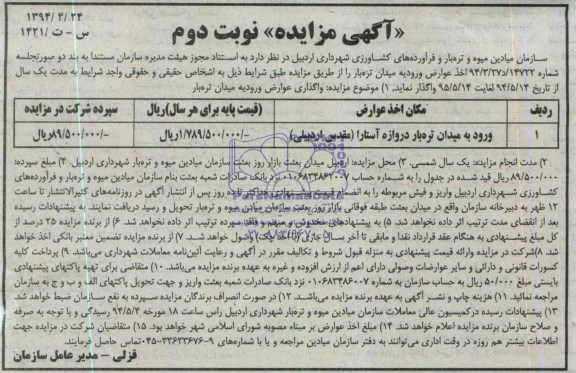 ۱۳۹۴/ ۴/ ۲۴
س - ت /۱۴۲۱
«آگهی مزایده» نوبت دوم
سازمان میادین میوه و تره‌بار و فرآورده‌های کشاورزی شهرداری اردبیل در نظر دارد به استناد مجوز هیئت مدیره سازمان مستندا به بند دو صورتجلسه
شماره ۹۴/۳/۲۷/۱۴۷۲۲ اخذ عوارض ورودیه میدان تره‌بار را از طریق مزایده طبق شرایط ذیل به اشخاص حقیقی و حقوقی واجد شرایط به مدت یک سال
از تاریخ ۹۴/۵/۱۴ لغایت ۹۵/۵/۱۴ واگذار نماید. ۱) موضوع مزایده: واگذاری عوارض ورودیه میدان تره‌بار
ردیف مکان اخذ عوارض (قیمت پایه برای هر سال)ریال سپرده شرکت در مزایده
۱ ورود به میدان تره‌بار دروازه آستارا (مقدس اردبیلی) ۱/۷۸۹/۵۰۰/۰۰۰/-ریال ۸۹/۵۰۰/۰۰۰/-ریال
۲) مدت انجام مزایده: یک سال شمسی. ۳) محل مزایده: اردبیل میدان بعثت بازار روز بعثت سازمان میادین میوه و تره‌بار شهرداری اردبیل. ۴) مبلغ سپرده:
۸۹/۵۰۰/۰۰۰ ریال قید شده در جدول را به شماره حساب ۰۱۰۶۸۳۴۸۶۲۰۰۷ نزد بانک صادرات شعبه بعثت بنام سازمان میادین میوه و تره‌بار و فرآورده‌های
کشاورزی شهرداری اردبیل واریز و فیش مربوطه را به انضمام قیمت پیشنهادی حداکثر تا ده روز پس از انتشار آگهی در روزنامه‌های کثیرالانتشار تا ساعت
۱۲ ظهر به دبیرخانه سازمان واقع در میدان بعثت طبقه فوقانی بازار روز بعثت سازمان میادین میوه و تره‌بار تحویل و رسید دریافت نمایند. به پیشنهادات رسیده
بعد از انقضای مدت ترتیب اثر داده نخواهد شد. ۵) به پیشنهادهای مخدوش و مبهم و فاقد سپرده ترتیب اثر داده نخواهد شد. ۶) از برنده مزایده ۲۵ درصد از
کل مبلغ پیشنهادی به هنگام عقد قرارداد نقدا و مابقی تا آخر سال جاری (۴ فقره چک) وصول خواهد شد. ۷) از برنده مزایده تضمین معتبر بانکی اخذ خواهد
شد. ۸)شرکت در مزایده وارائه قیمت پیشنهادی به منزله قبول شروط و تکالیف مقرر در آگهی و رعایت آئین‌نامه معاملات شهرداری می‌باشد. ۹) پرداخت کلیه
کسورات قانونی و دارائی و سایر عوارضات وصولی دارای اعم از ارزش افزوده و غیره به عهده برنده مزایده می‌باشد. ۱۰) متقاضی برای تهیه پاکتهای پیشنهادی
بایستی مبلغ ۵۰/۰۰۰ ریال به حساب سازمان به شماره ۰۱۰۶۸۳۴۸۶۰۰۷ نزد بانک صادرات شعبه بعثت واریز و جهت تحویل پاکتهای الف و ب و ج به سازمان
مراجعه نمائید. ۱۱) هزینه چاپ و نشر آگهی به عهده برنده مزایده می‌باشد. ۱۲) در صورت انصراف برندگان مزایده سپرده به نفع سازمان ضبط خواهد شد.
۱۳) پیشنهادات رسیده درکمیسیون عالی معاملات سازمان میادین میوه و تره‌بار شهرداری اردبیل راس ساعت ۱۸ مورخه ۹۴/۵/۴ رسیدگی و با توجه به صرفه
و صلاح سازمان برنده مزایده اعلام خواهد شد. ۱۴) مبلغ اخذ عوارض بر مبناء مصوبه شورای اسلامی شهر خواهد بود. ۱۵) متقاضیان شرکت در مزایده جهت
اطلاعات بیشتر هم روزه در وقت اداری می‌توانند به دفتر سازمان میادین مراجعه و یا با شماره‌های ۹-۳۳۶۳۳۶۷۶-۰۴۵ تماس حاصل فرمایند.
قزلی - مدیر عامل سازمان